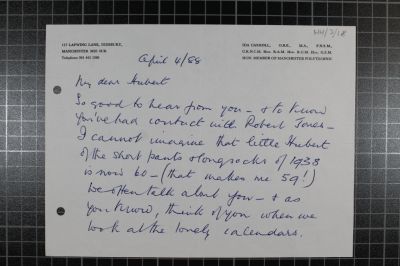 117 LAPWING LANE, DIDSBURY,
MANCHESTER M20 0UR
Telephone 061 445 1006
IDA CARROLL, O.B.E., M.A., F.N.S.M.,
HON. MEMBER OF MANCHESTER POLYTECHNIC
April 4/88
My dear Hubert
So good to hear from you - & to know
you've had contact with Robert Jones -
I cannot imagine that little Hubert
of the short pants & long socks of 1938
is now 60 - (that makes me 59!)
We often talk about you - & as
you know, think of you when we
look at the lovely calendars.